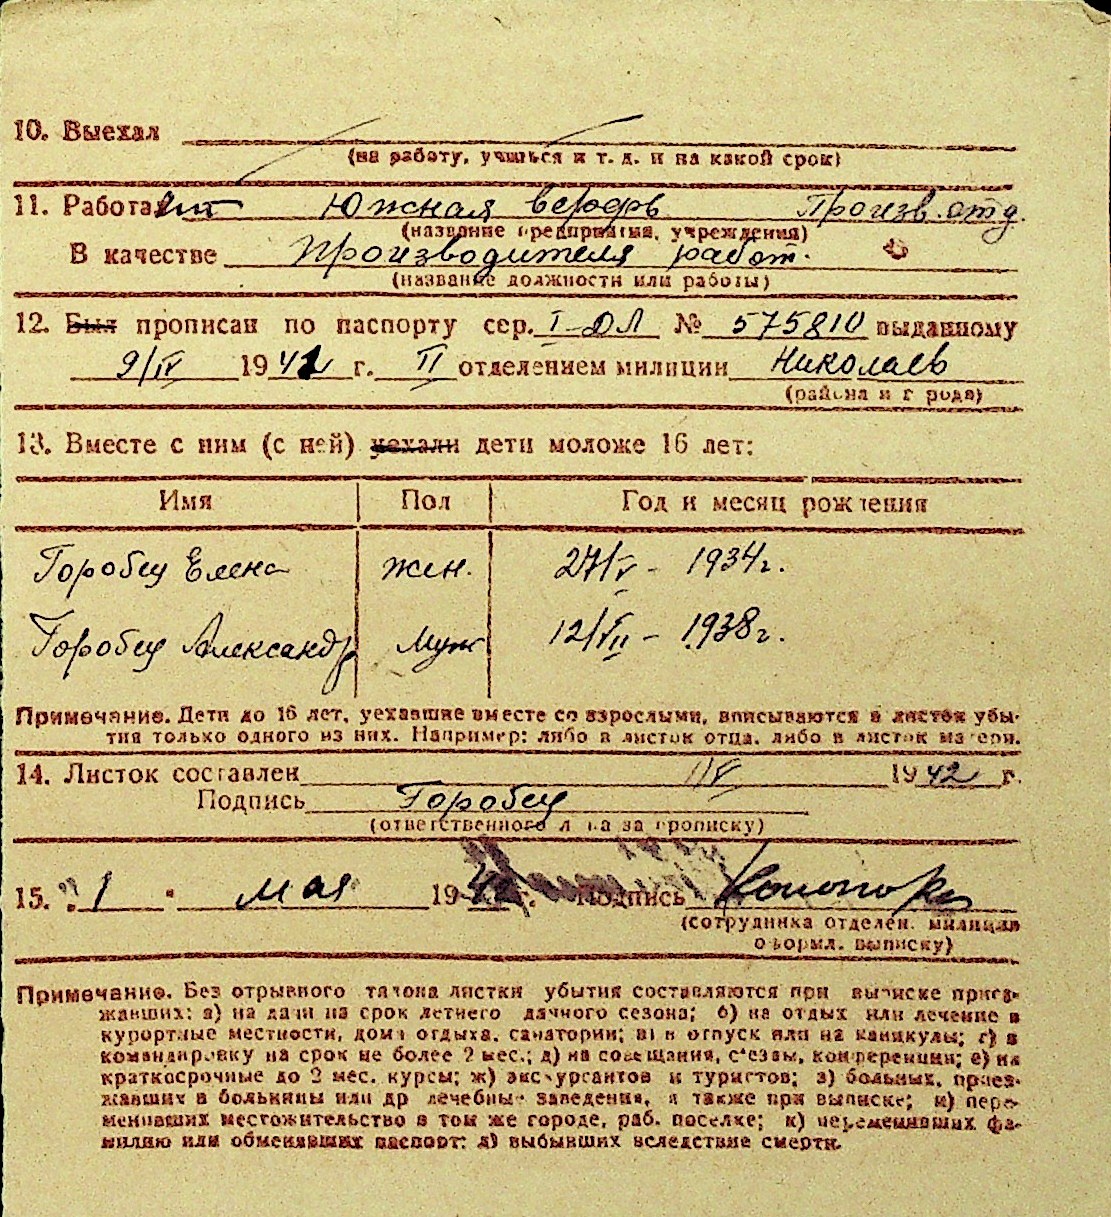 10. Выехал
(на работу, учиться и т. д. и на какой срок)
11. Работает Южная верфь Произв. отд.
(название предприятия, учреждения)
В качестве Производителя работ.
(название должности или работы)
12. Был прописан по паспорту сер. I-ДЛ № 575810 выданному
9/IV 1942 г. II отделением милиции Николаев
(района и города)
13. Вместе с ним (с ней) уехали дети моложе 16 лет:
Имя Пол Год и месяц рождения
Горобец Елена жен. 27/V - 1934 г.
Горобец Александр Муж 12/VII - 1938 г.
Примечание. Дети до 16 лет, уехавшие вместе со взрослыми, вписываются в листок убы-
тия только одного из них. Например: либо в листок отца, либо в листок матери.
14. Листок составлен 1/V 1942 г.
Подпись Горобец
(ответственного лица за прописку)
15. "1" мая 1942 г. Подпись
(сотрудника отделен. милиции
оформл. выписку)
Примечание. Без отрывного талона листки убытия составляются при выписке приез-
жавших: а) на дачи на срок летнего дачного сезона; б) на отдых или лечение в
курортные местности, дома отдыха, санатории; в) в отпуск или на каникулы; г) в
командировку на срок не более 2 мес.; д) на совещания, съезды, конференции; е) на
краткосрочные до 2 мес. курсы; ж) экскурсантов и туристов; з) больных, приез-
жавших в больницы или др лечебные заведения, а также при выписке; и) пере-
менивших местожительство в том же городе, раб. поселке; к) переменивших фа-
милию или обменявших паспорт; л) выбывших вследствие смерти.